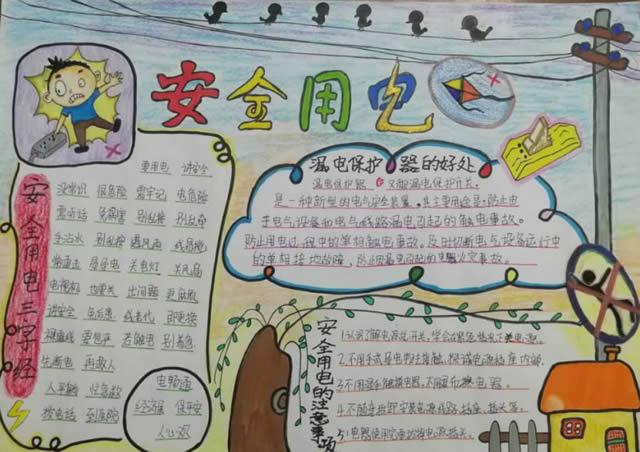 安全用电
安全用电三字经
要用电 讲安全
没常识 很危险 需牢记 电危险
需听话 鸟窝罩 别乱接 别乱牵
手沾水 别乱碰 遇风雨 线易搅
管道走 易导电 关电灯 关风扇
电视机 也要关 出问题 更麻烦
讲安全
若触电 别着急
生断电 再救人
人平躺 忙急救
拨电话 到医院
电畅通
经常 保平安
人心暖
漏电保护器的好处
漏电保护器 又称漏电保护开关,
是一种新型的电气安全装置,其主要用途:防止由
于电气设备和电气线路漏电引起的触电事故。
防止用电过程中的单相触电事故。及时切断电气设备运行中
的单相接地故障,防止因漏电引起的电气火灾事故。
安全用电的注意事项
1.认识了解电源总开关,学会在紧急情况下关电源。
2.不用手或导电物接触、探试电源插座内部。
3.不用湿手触摸电器,不用湿布擦电器。
4.不随意拆卸安装电源线路、插座、插头等。
5.电器使用完毕后拔电源插头。